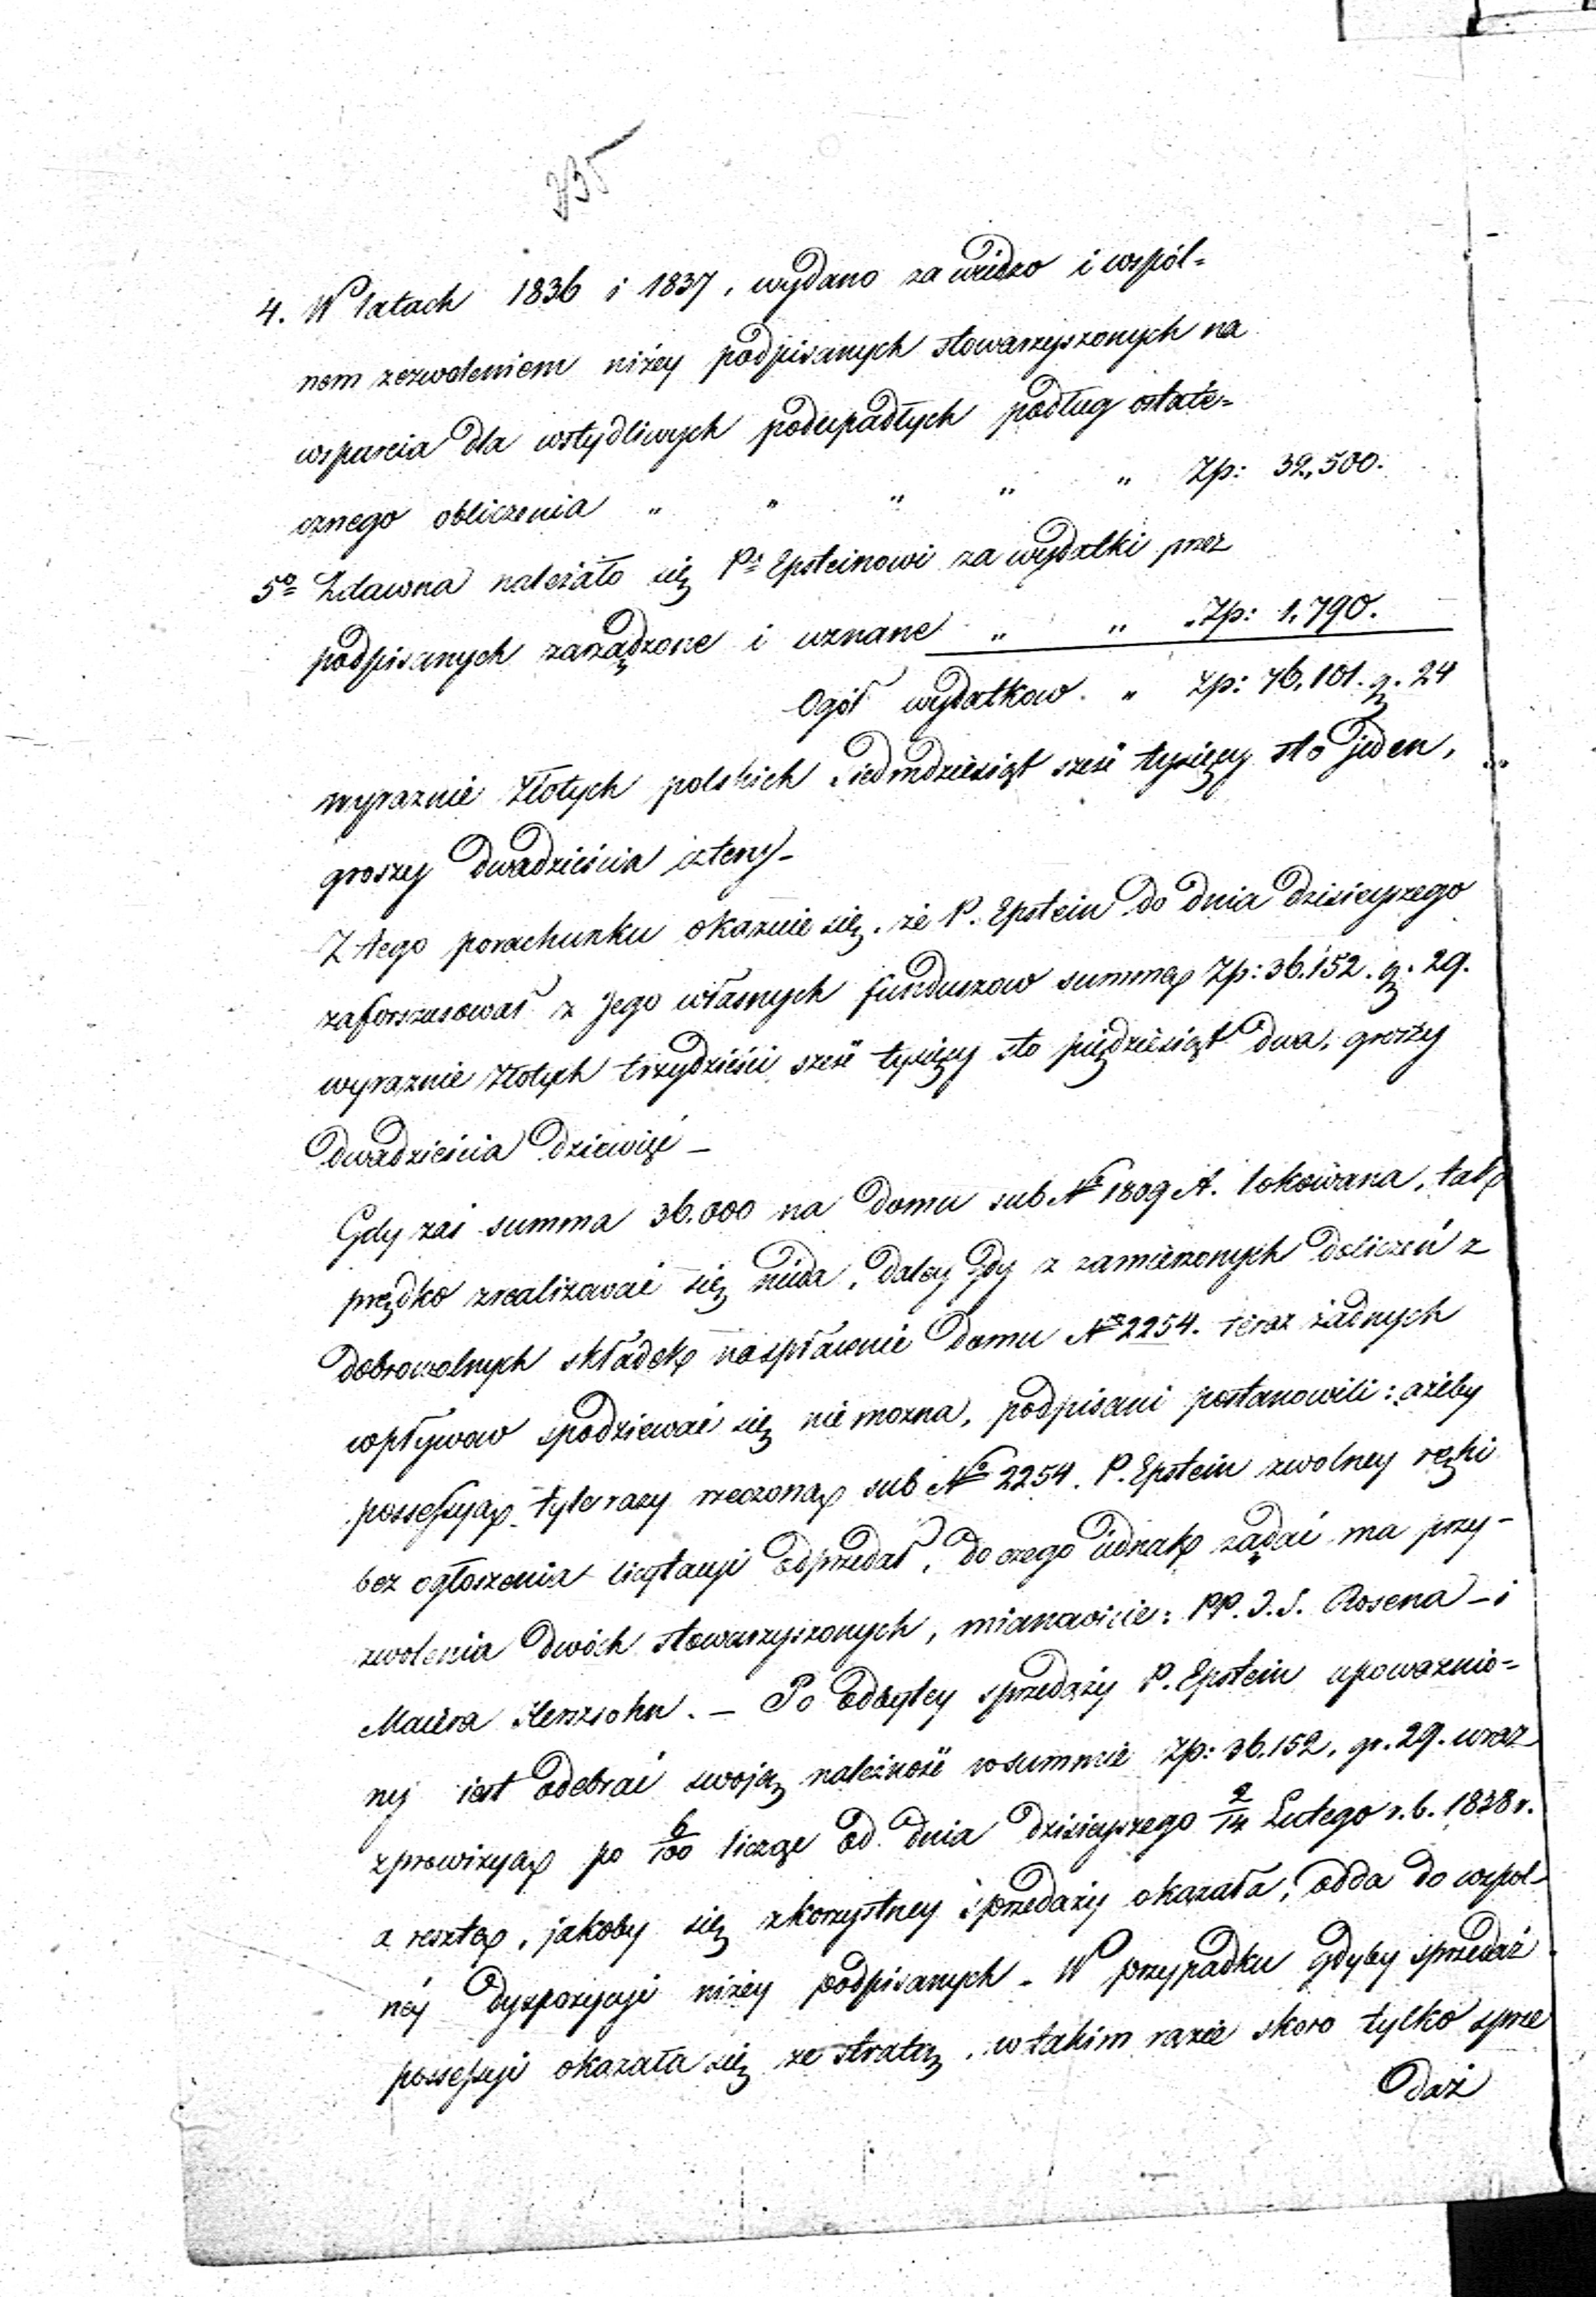 235
4. W latach 1836 i 1837, wydano za wiedzo i wspól=
nem zezwoleniem niżey podpisanych stowarzyszonych na
wsparcia dla wstydliwych podupadłych podług ostate=
cznego obliczenia " " " " " Zp: 32,500.
5º Zdawna należało się Pu Epsteinowi za wydatki przez
podpisanych zarządzone i uznane " " " Zp: 1,790.
Ogół wydatkow. " Zp: 76,101. g. 24
wyraznie Złotych polskich Siedmdziesiąt sześć tysięcy sto jeden,
groszy Dwadzieścia cztery -
Z tego porachunku okazuie się, że P. Epstein do dnia dzisieyszego
zaforszusował z Jego własnych funduszow summę Zp: 36.152. g. 29.
wyraznie Złotych trzydzieści sześć tysięcy sto pięćdziesiąt dwa, groszy
Dwadzieścia dziewięć -
Gdy zaś summa 36.000 na domu sub Nº 1809 A. lokowana, tak
prędko zrealizować się nieda, daley gdy z zamierzonych doliczeń z
dobrowolnych składek na spławienie domu Nº 2254. teraz żadnych
wpływow spodziewać się nie mozna, podpisani postanowili: ażeby
possessyą tyle razy rzeczoną sub Nº 2254. P. Epstein z wolney ręki
bez ogłoszenia licytacyi odprzedał, do czego iednak żądać ma przy-
zwolenia dwóch stowarzyszonych, mianowicie: PP. J. S. Rosena - i
Maiera Herszsohn. - Po odbytey sprzedaży P. Epstein upoważnio=
ny iest odebrać swoię należność w summie Zp: 36.152. gr. 29. wraz
z prowizyą po 6/100 licząc od dnia dzisieyszego 2/14 Lutego r. b. 1838 r.
a resztę, jakoby się z korzystney sprzedaży okazała, odda do wspol-
néy dyspozycyi niżey podpisanych. W przypadku gdyby sprzedaż
possessyi okazała się ze stratą, w takim razie skoro tylko sprze
daż